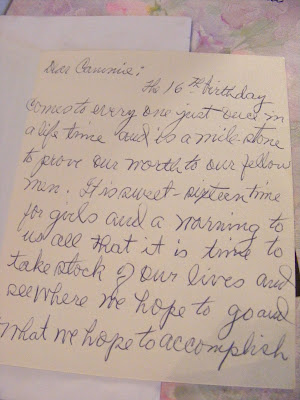 Dear Cammie:
The 16th birthday
comes to every one just once in
a life time and is a mile-stone
to prove our worth to our fellow
men. It is sweet-sixteen time
for girls and a warning to
us all that it is time to
take stock of our lives and
see where we hope to go and
what we hope to accomplish